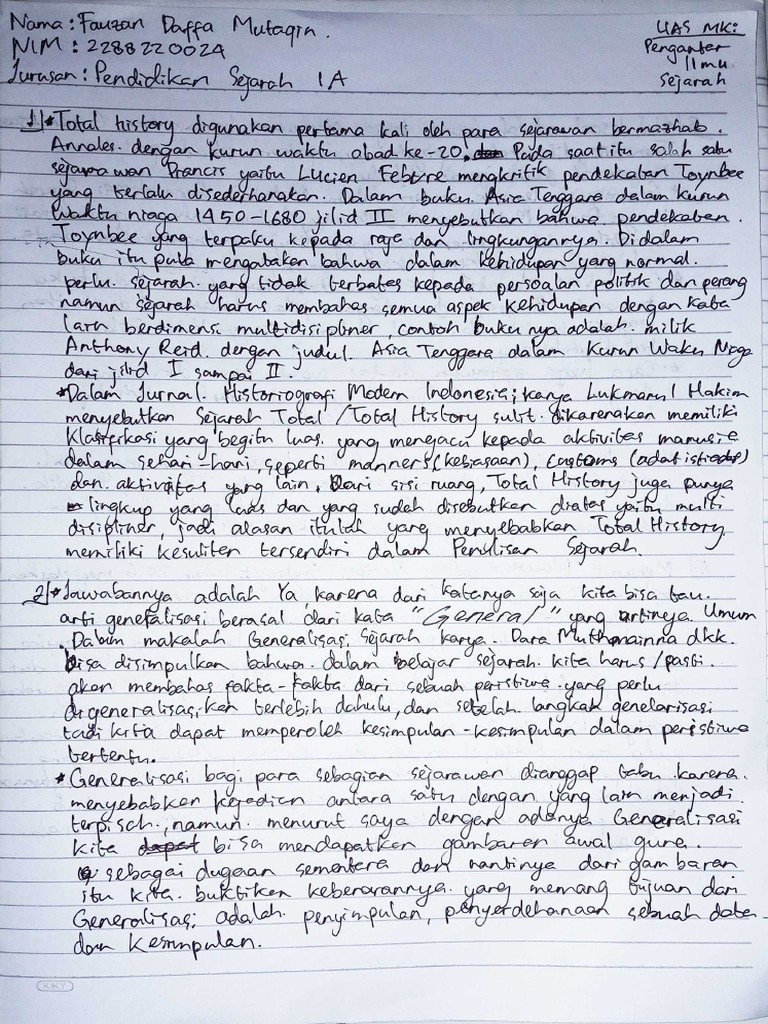 Nama : Fauzan Daffa Mutaqin.
NIM : 2288220024
Jurusan : Pendidikan Sejarah 1A
UAS MK:
Pengantar
Ilmu
Sejarah
1) * Total history digunakan pertama kali oleh para sejarawan bermazhab.
Annales. dengan kurun waktu abad ke-20. Pada saat itu salah satu
sejarawan Prancis yaitu Lucien Febvre mengkritik pendekatan Toynbee
yang terlalu disederhanakan. Dalam buku Asia Tenggara dalam kurun
waktu niaga 1450-1680 jilid II menyebutkan bahwa pendekatan.
Toynbee yang terpaku kepada raja dan lingkungannya. Didalam
buku itu pula mengatakan bahwa dalam kehidupan yang normal.
perlu. sejarah. yang tidak terbatas kepada persoalan politik dan perang
namun sejarah harus membahas semua aspek kehidupan dengan kata
lain berdimensi multidisipliner, contoh bukunya adalah. milik
Anthony Reid. dengan judul. Asia Tenggara dalam Kurun Waku Niaga
dari jilid I sampai II.
* Dalam Jurnal. Historiografi Modern Indonesia; karya Lukmanul Hakim
menyebutkan Sejarah Total / Total History sulit. dikarenakan memiliki
Klasifikasi yang begitu luas. yang mengacu kepada aktivitas manusia
dalam sehari-hari, seperti manners (kebiasaan), Customs (adat istiadat)
dan. aktivitas yang lain. Dari sisi ruang, Total History juga punya
lingkup yang luas dan yang sudah disebutkan diatas yaitu multi
disipliner, jadi alasan itulah yang menyebabkan Total History
memiliki kesulitan tersendiri dalam Penulisan Sejarah.
2) * Jawabannya adalah Ya, karena dari katanya saja kita bisa tau.
arti generalisasi berasal dari kata "General" yang artinya Umum
. Dalam makalah Generalisasi Sejarah karya. Dara Muthmainna dkk.
bisa disimpulkan bahwa. dalam belajar sejarah. kita harus / pasti.
akan membahas fakta-fakta dari sebuah peristiwa yang perlu
digeneralisasikan terlebih dahulu, dan setelah langkah genelarisasi
tadi kita dapat memperoleh kesimpulan-kesimpulan dalam peristiwa
tertentu.
* Generalisasi bagi para sebagian sejarawan dianggap tabu karena.
menyebabkan kejadian antara satu dengan yang lain menjadi.
terpisah, namun. menurut saya dengan adanya Generalisasi
kita dapat bisa mendapatkan gambaran awal guna.
sebagai dugaan sementara dan nantinya dari gambaran
itu kita. buktikan kebenarannya. yang memang tujuan dari
Generalisasi adalah. penyimpulan, penyerdehanaan sebuah data
dan kesimpulan.
KIKY